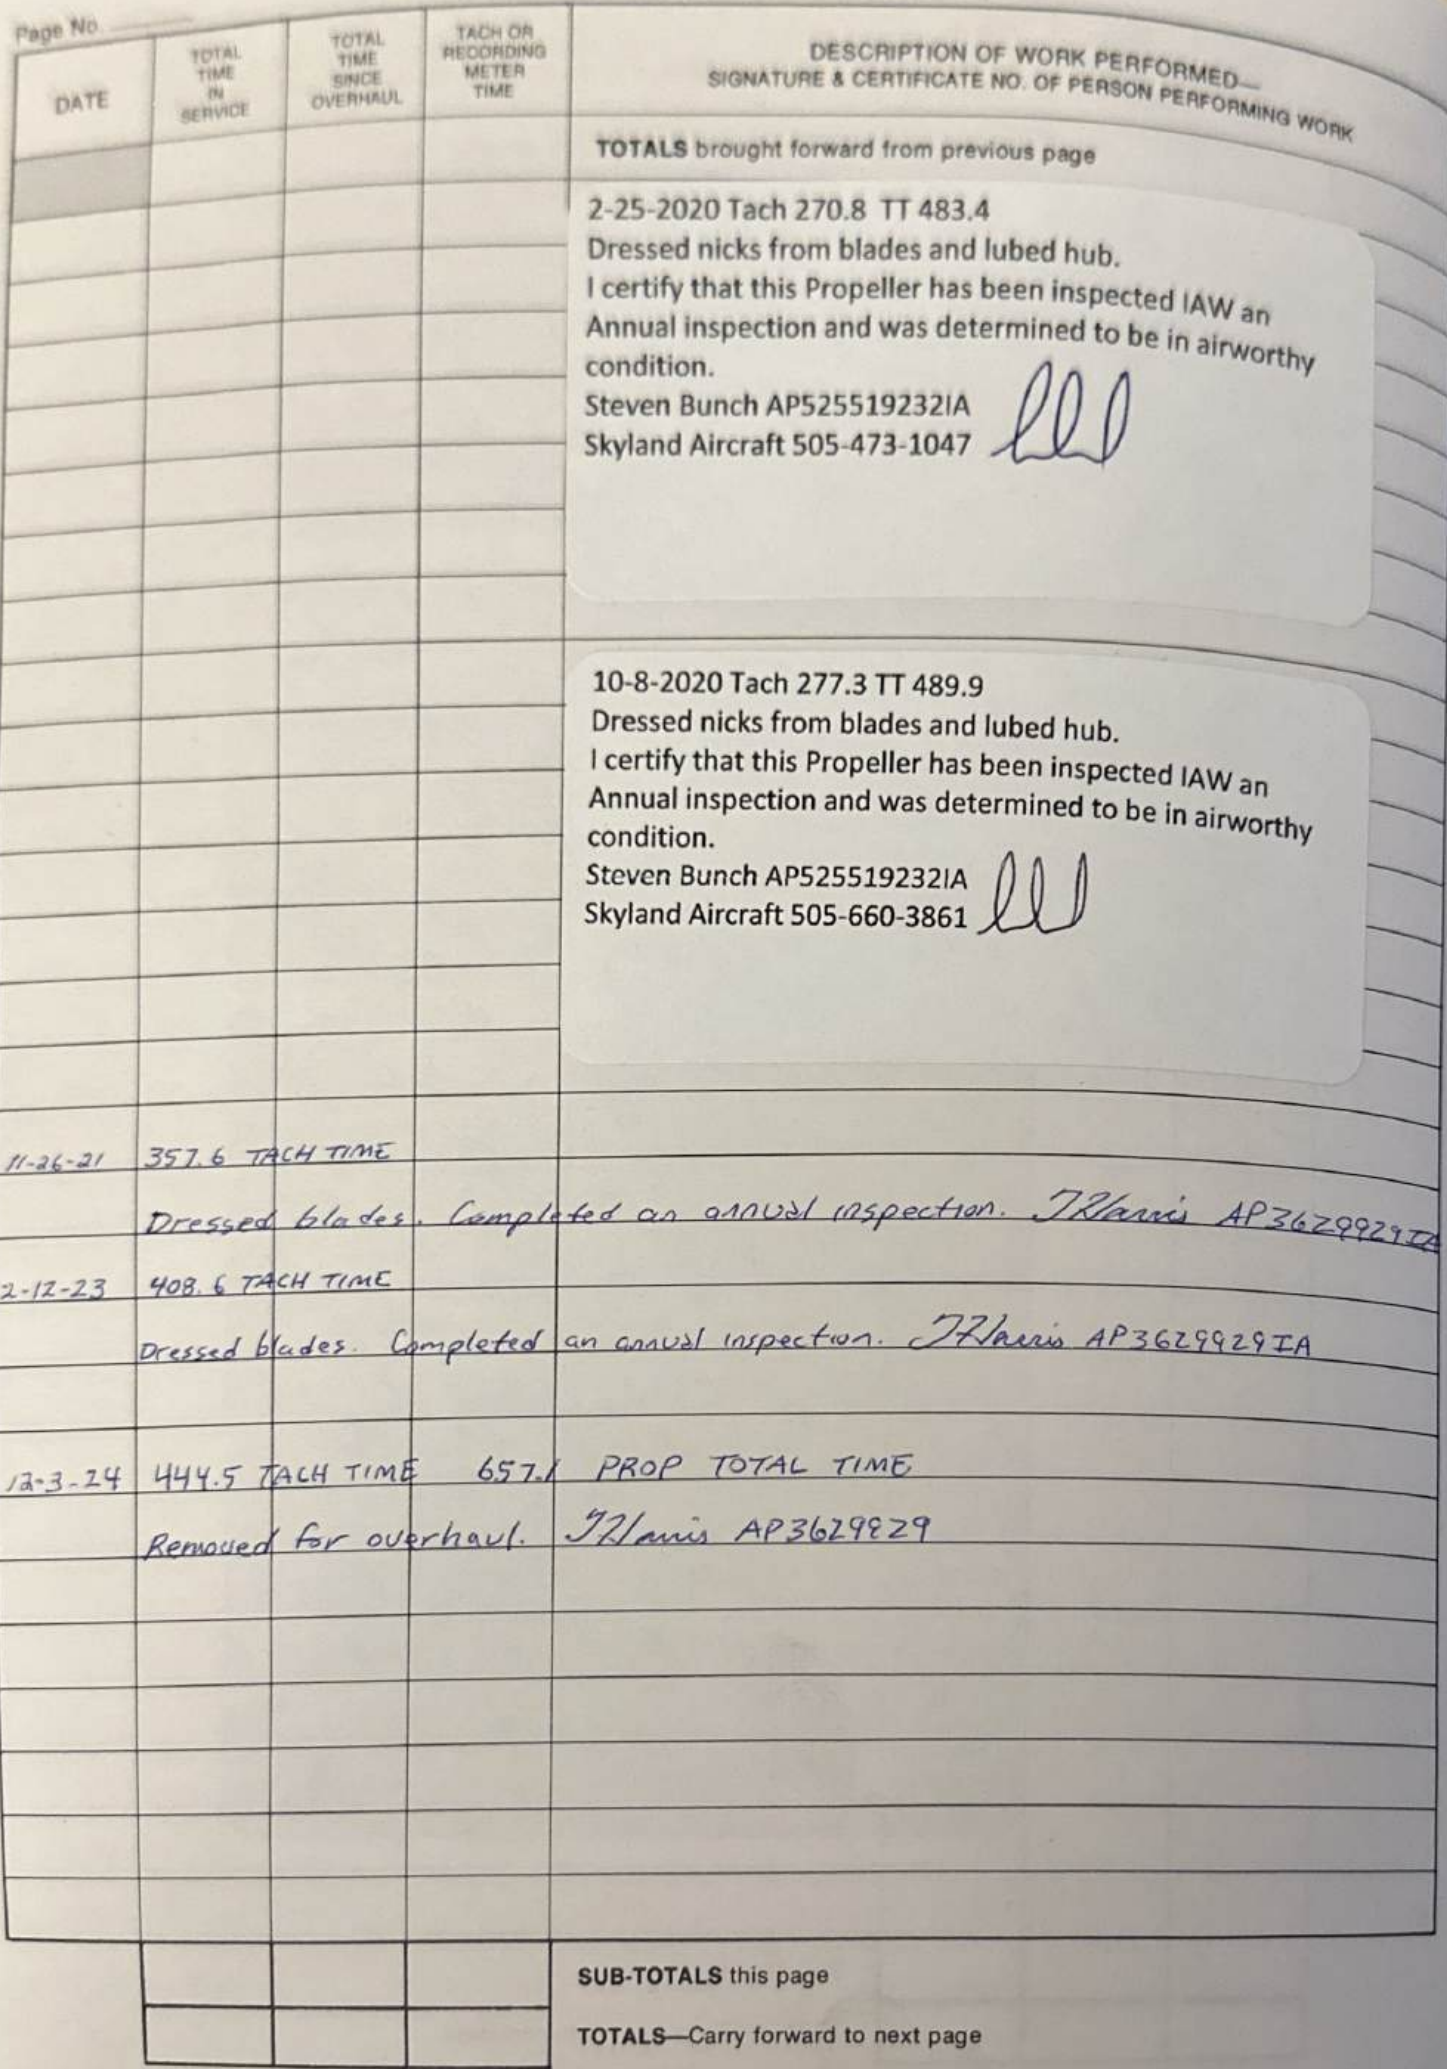 Page No.
DATE
TOTAL TIME IN SERVICE
TOTAL TIME SINCE OVERHAUL
TACH OR RECORDING METER TIME
DESCRIPTION OF WORK PERFORMED—
SIGNATURE & CERTIFICATE NO. OF PERSON PERFORMING WORK
TOTALS brought forward from previous page
2-25-2020 Tach 270.8 TT 483.4
Dressed nicks from blades and lubed hub.
I certify that this Propeller has been inspected IAW an
Annual inspection and was determined to be in airworthy
condition.
Steven Bunch AP525519232IA
Skyland Aircraft 505-473-1047
10-8-2020 Tach 277.3 TT 489.9
Dressed nicks from blades and lubed hub.
I certify that this Propeller has been inspected IAW an
Annual inspection and was determined to be in airworthy
condition.
Steven Bunch AP525519232IA
Skyland Aircraft 505-660-3861
11-26-21 357.6 TACH TIME
Dressed blades. Completed an annual inspection. Harris AP3629929IA
2-12-23 408.6 TACH TIME
Dressed blades. Completed an annual inspection. Harris AP3629929IA
12-3-24 444.5 TACH TIME 657.1 PROP TOTAL TIME
Removed for overhaul. Harris AP3629829
SUB-TOTALS this page
TOTALS—Carry forward to next page